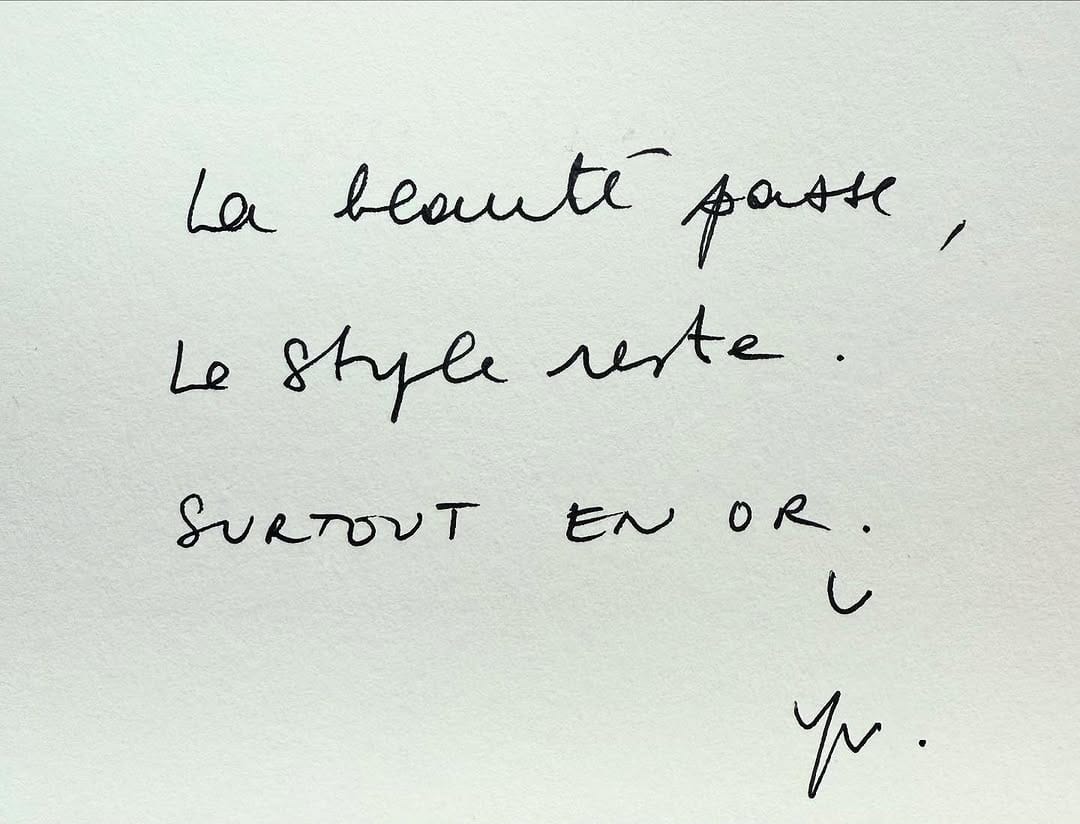 La beauté passe,
Le style reste.
SURTOUT EN OR.
Yv.